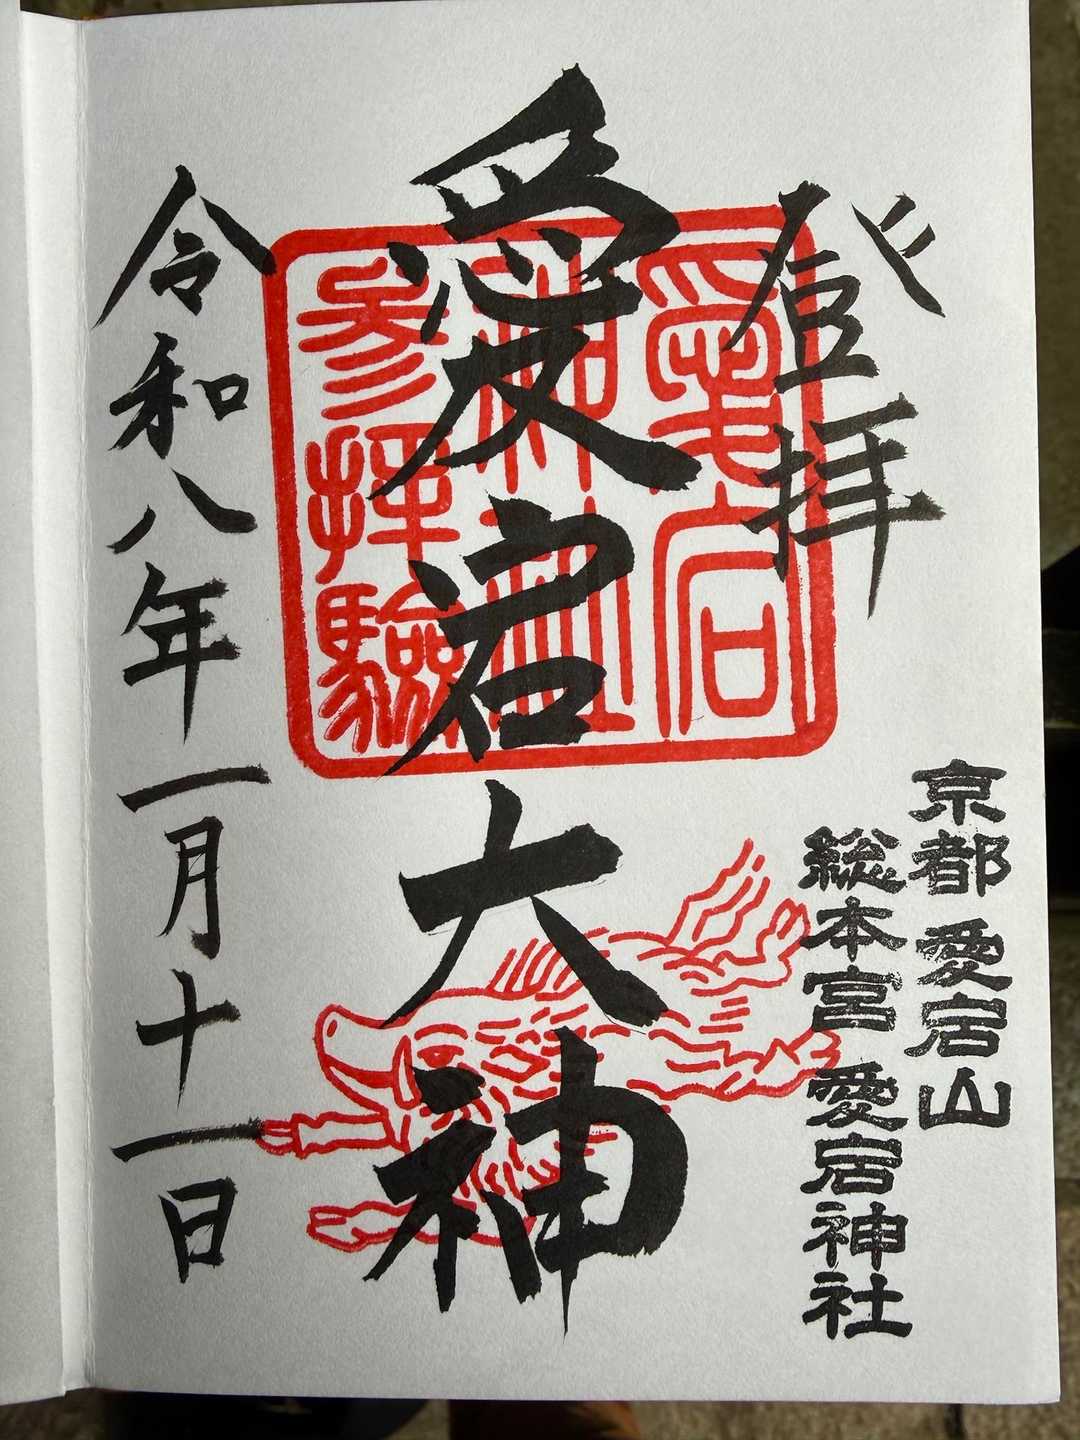 登拝
京都 愛宕山
総本宮 愛宕神社
愛宕大神
愛宕
神社
参拝驗
令和八年一月十一日